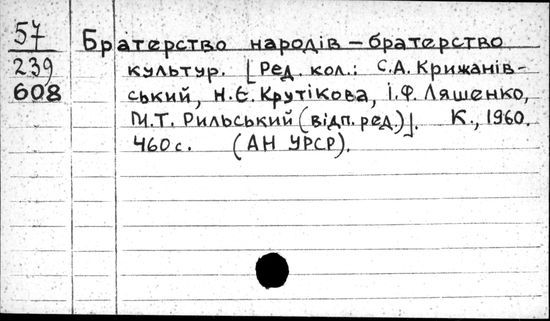 57
239
608
Братерство народів – братерство
культур. [Ред. кол.: С.А. Крижанів-
ський, Н.Є. Крутікова, І.Ф. Ляшенко,
М.Т. Рильський (відп. ред.)]. К., 1960.
460 с. (АН УРСР).